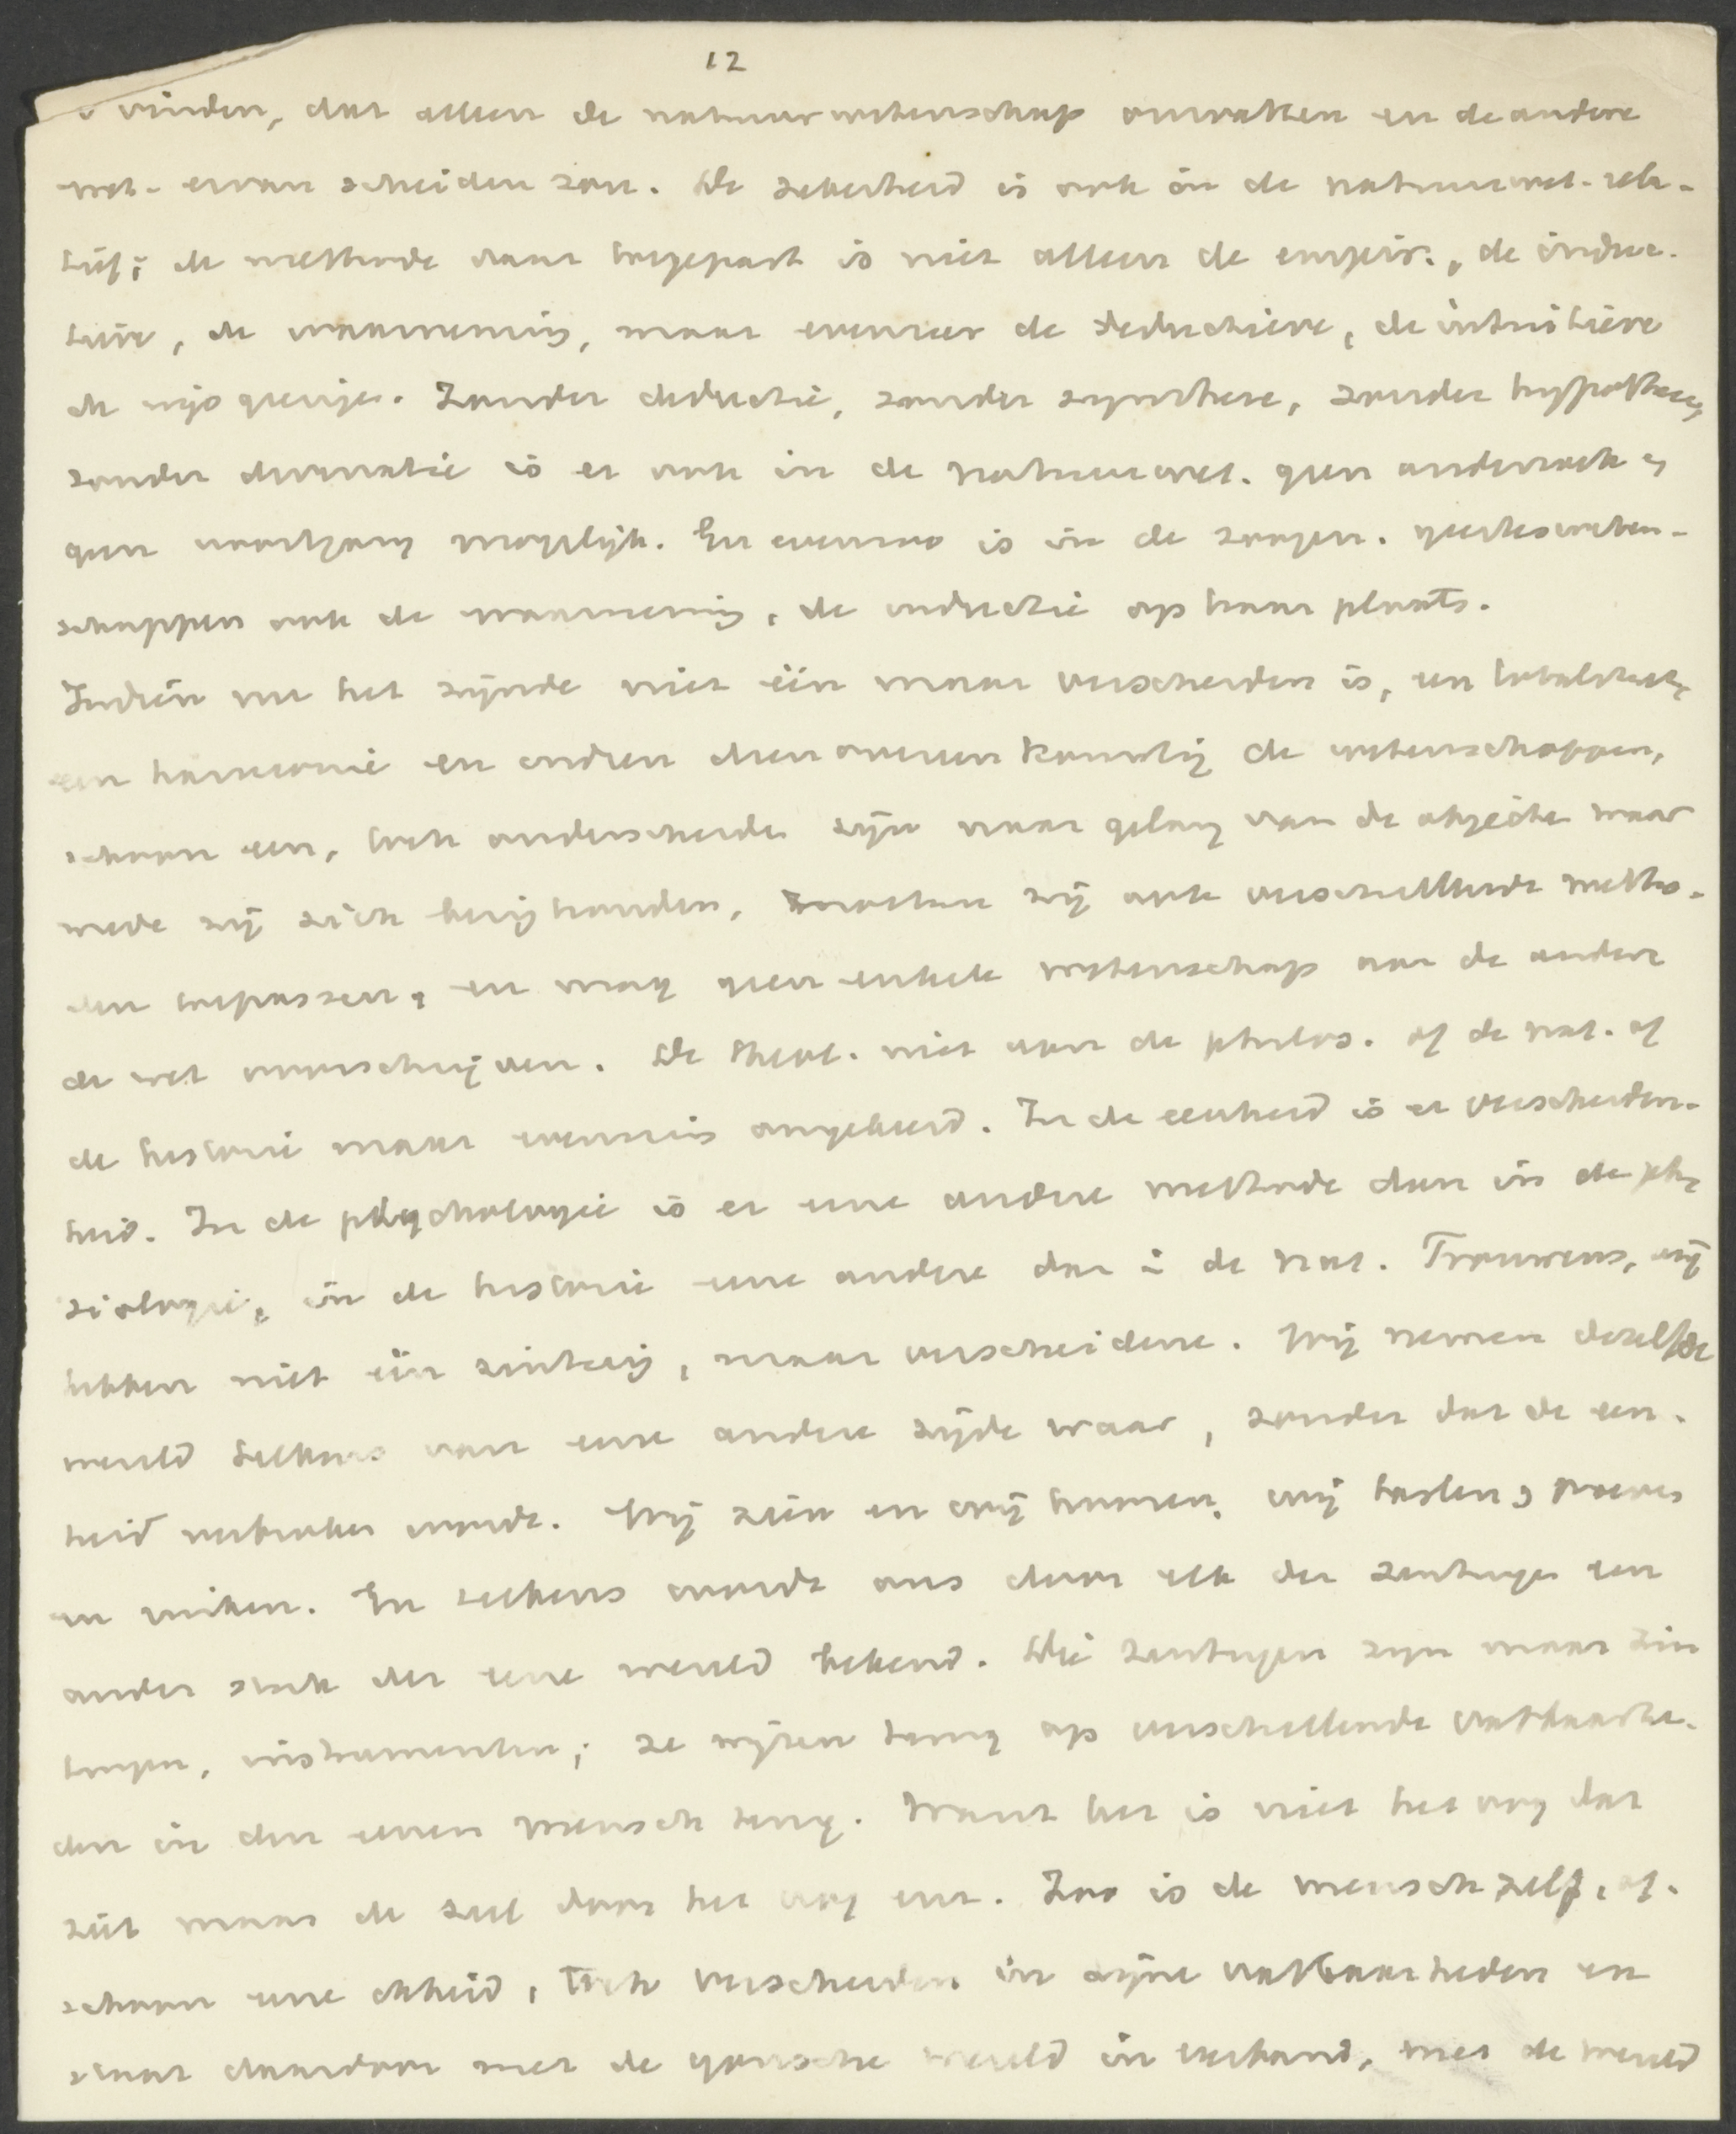 12
vinden, dat alleen de natuurwetenschap omvatten en de andere
wet. ervan scheiden zou. De zekerheid is ook in de natuurwet. rela-
tief; de methode daar toegepast is niet alleen de empir., de induc-
tieve, de waarneming, maar evenzeer de deductieve, de intuitieve
de wijsgeerige. Zonder deductie, zonder synthese, zonder hypothese,
zonder divinatie is er ook in de natuurwet. geen onderzoek en
geen voortgang mogelijk. En evenzoo is in de zoogen. geestesweten-
schappen ook de waarneming, de inductie op haar plaats.
Indien nu het zijnde niet één maar verscheiden is, een totaliteit,
een harmonie en indien dienovereenkomstig de wetenschappen,
schoon een, toch onderscheiden zijn naar gelang van de objecten waar
mede zij zich bezighouden, moeten zij ook verschillende metho-
den toepassen, en mag geen enkele wetenschap aan de andere
de wet voorschrijven. De theol. niet aan de philos. of de nat. of
de historie maar evenmin omgekeerd. In de eenheid is er verscheiden-
heid. In de psychologie is er eene andere methode dan in de phy-
siologie, in de historie eene andere dan in de nat. Trouwens, wij
hebben niet één zintuig, maar verscheidene. Wij nemen dezelfde
wereld telkens van eene andere zijde waar, zonder dat de een-
heid verbroken wordt. Wij zien en wij hooren, wij tasten, proeven
en ruiken. En telkens wordt ons door elk der zintuigen een
ander stuk der eene wereld bekend. Die zintuigen zijn maar zin
tuigen, instrumenten; ze wijzen terug op verschillende vatbaarhe-
den in den eenen mensch terug. Want het is niet het oog dat
ziet maar de ziel door het oog een. Zoo is de mensch zelf, of-
schoon eene eenheid, toch verscheiden in zijne vatbaarheden en
staat daardoor met de gansche wereld in verband, met de wereld